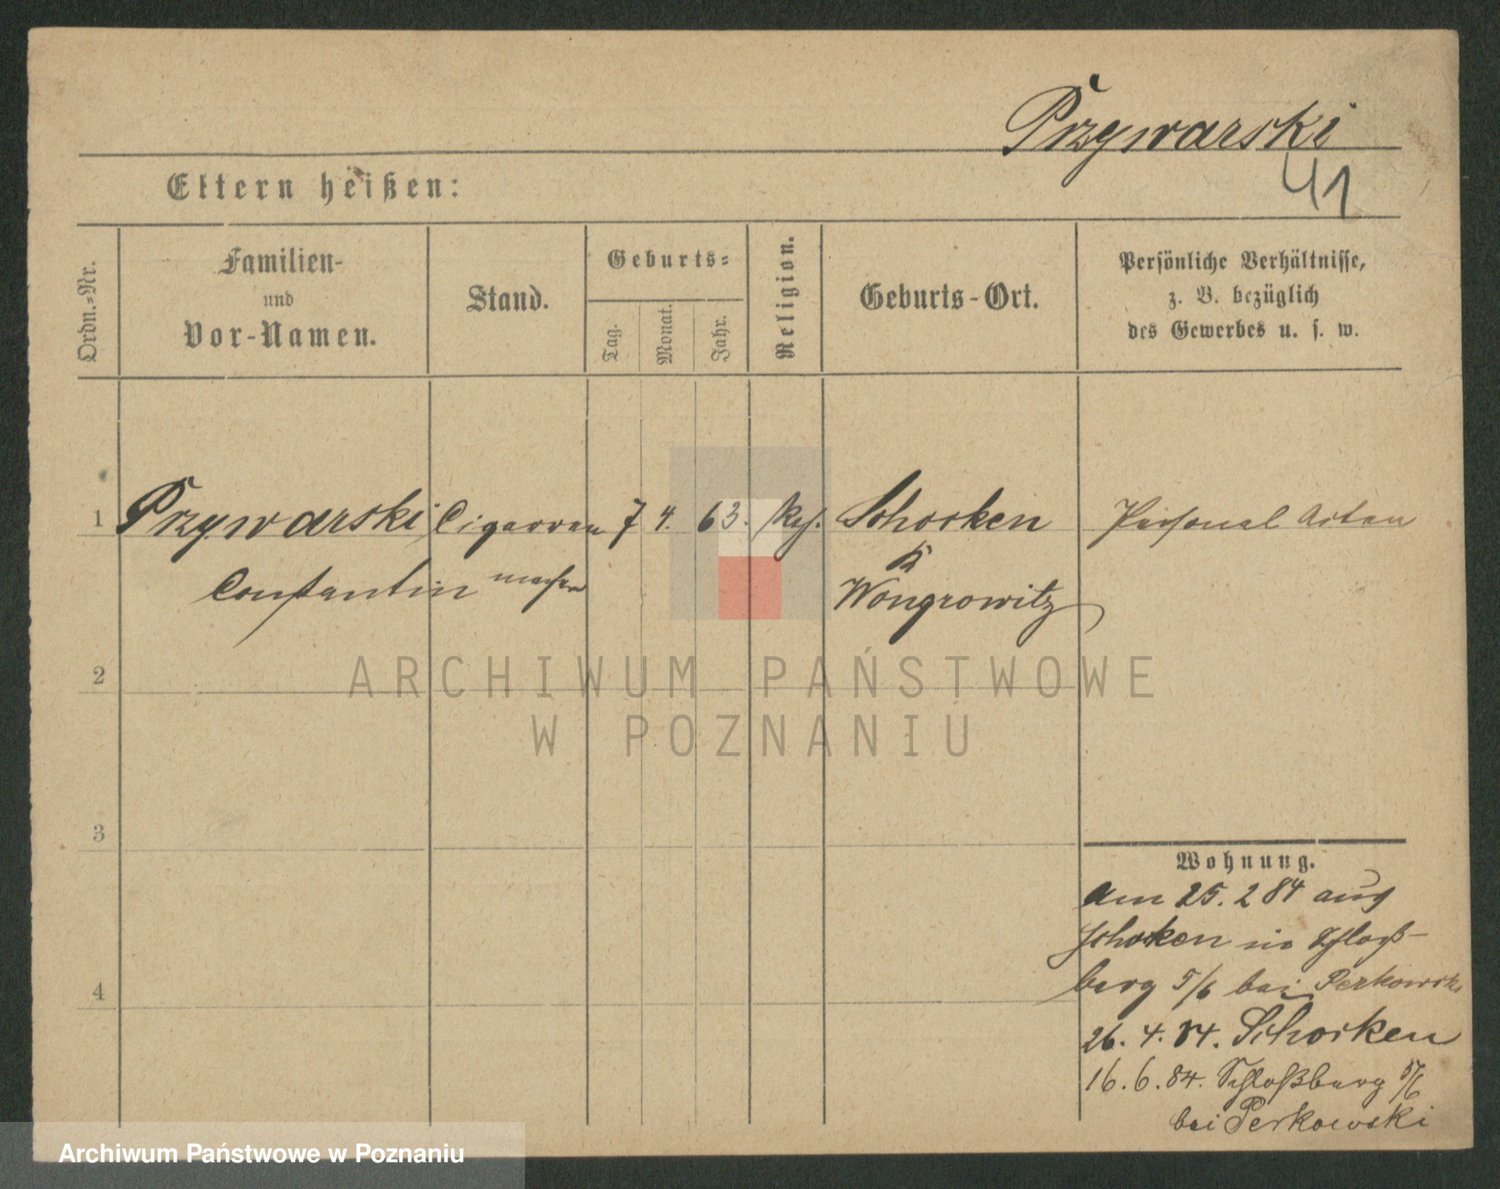 Przywarski
41
Eltern heißen:
Ordn.-Nr.
Familien-
und
Vor-Namen.
Stand.
Geburts-
Tag.
Monat.
Jahr.
Religion.
Geburts-Ort.
Persönliche Verhältnisse,
z. B. bezüglich
des Gewerbes u. s. w.
1 Przywarski Cigarren 7 4. 63. Schocken Personal Acten
Constantin macher
K
Wongrowitz
2
ARCHIWUM PAŃSTWOWE
W POZNANIU
3
4
Wohnung.
Am 25. 2 84 aus
Schocken in Schloß-
berg 5/6 bei Perkowski
26. 4. 84. Schocken
16. 6. 84. Schloßberg 5/6
bei Perkowski
Archiwum Państwowe w Poznaniu